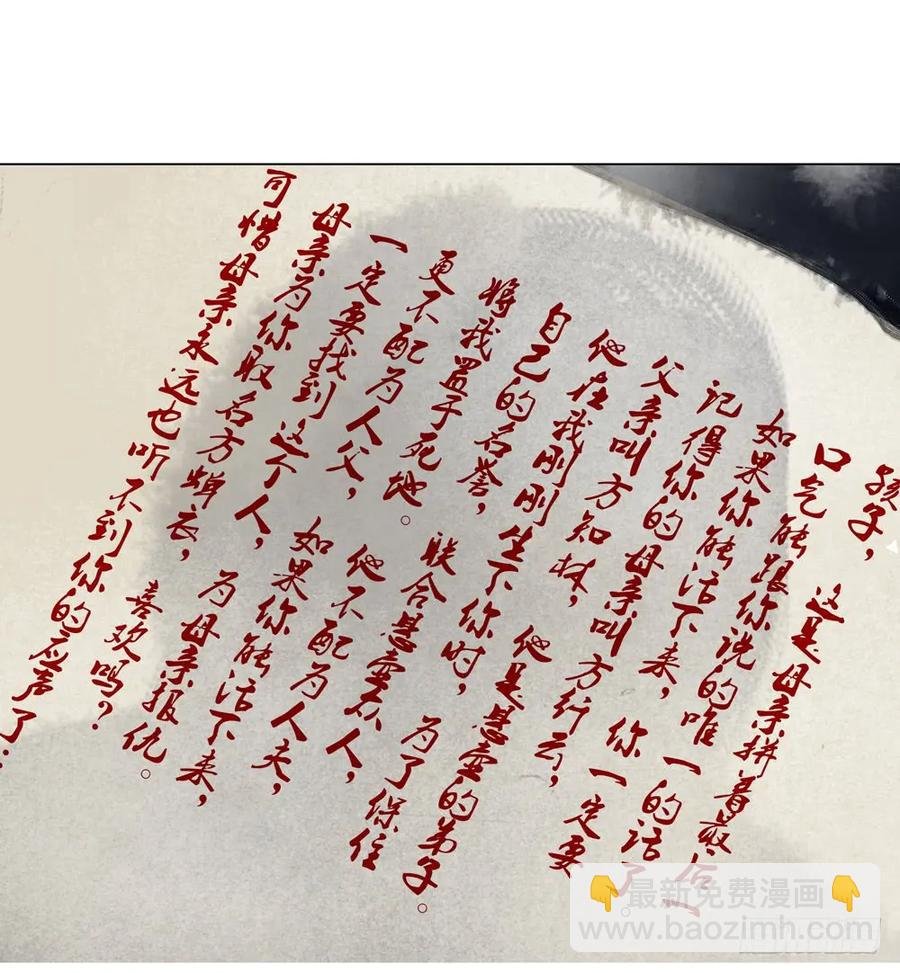 孩子，这是母亲拼着最后一
口气能跟你说的唯一的话了。
如果你能活下来，你一定要
记得你的母亲叫方行云，
父亲叫方知林，他是悬壶的弟子。
他在我刚刚生下你时，为了保住
自己的名誉，联合悬壶众人，
将我置于死地。他不配为人夫，
更不配为人父，如果你能活下来，
一定要找到这个人，为母亲报仇。
母亲为你取名方蝉衣，喜欢吗？
可惜母亲永远也听不到你的应声了…
最新免费漫画
www.baozimh.com